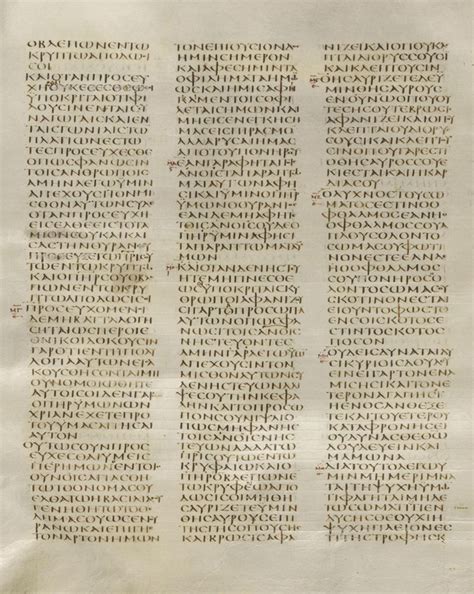 ΟΒΛΕΠΩΝΕΝΤΩ
ΚΡΥΠΤΩΑΠΟΔΩϹΙ
ϹΟΙ
ΚΑΙΟΤΑΝΠΡΟϹΕΥ
ΧΗΟΥΚΕϹΕϹΘΕΩϹ
ΥΠΟΚΡΙΤΑΙΟΤΙΦΙ
ΛΟΥϹΙΝΕΝΤΑΙϹϹΥ
ΝΑΓΩΓΑΙϹΚΑΙΕΝ
ΤΑΙϹΓΩΝΙΑΙϹΤΩ
ΠΛΑΤΙΩΝΕϹΤΩ
ΤΕϹΠΡΟϹΕΥΧΕϹΘΑΙ
ΟΠΩϹΦΑΝΩϹΙΝ
ΤΟΙϹΑΝΘΡΩΠΟΙϹ
ΑΜΗΝΛΕΓΩΥΜΙΝ
ΑΠΕΧΟΥϹΙΤΟΝΜΙ
ϹΘΟΝΑΥΤΩΝϹΥΔΕ
ΟΤΑΝΠΡΟϹΕΥΧΗ
ΕΙϹΕΛΘΕΕΙϹΤΟΤΑ
ΜΙΟΝϹΟΥΚΑΙΚΛΙ
ϹΑϹΤΗΝΘΥΡΑΝϹΟΥ
ΠΡΟϹΕΥΞΑΙΤΩΠΡΙϹΟΥ
ΤΩΕΝΤΩΚΡΥΠΤΩ
ΚΑΙΟΠΗΡϹΟΥΟΒΛΕ
ΠΩΝΕΝΤΩΚΡΥ
ΠΤΩΑΠΟΔΩϹΙϹΟΙ
ΠΡΟϹΕΥΧΟΜΕΝΟΙ
ΔΕΜΗΒΑΤΤΑΛΟΓΗ
ϹΗΤΑΙΩϹΠΕΡΟΙΕ
ΘΝΙΚΟΙΔΟΚΟΥϹΙΝ
ΓΑΡΟΤΙΕΝΤΗΠΟΛΥ
ΛΟΓΙΑΑΥΤΩΝΕΙϹΑ
ΚΟΥϹΘΗϹΟΝΤΑΙΜΗ
ΟΥΝΟΜΟΙΩΘΗΤΕ
ΑΥΤΟΙϹΟΙΔΕΝΓΑΡ
ΟΠΗΡΥΜΩΝΩΝ
ΧΡΙΑΝΕΧΕΤΕΠΡΟ
ΤΟΥΥΜΑϹΑΙΤΗϹΑΙ
ΑΥΤΟΝ
ΟΥΤΩϹΟΥΝΠΡΟϹ
ΕΥΧΕϹΘΑΙΥΜΕΙϹ
ΠΕΡΗΜΩΝΟΕΝΤΟΙϹ
ΟΥΝΟΙϹΑΓΙΑϹΘΗ
ΤΩΤΟΟΝΟΜΑϹΟΥ
ΕΛΘΑΤΩΗΒΑϹΙΛΕΙΑ
ϹΟΥΓΕΝΗΘΗΤΩΤΟΘΕ
ΛΗΜΑϹΟΥΩϹΕΝΟΥ
ΡΑΝΩΚΑΙΕΠΙΓΗϹ
ΤΟΝΑΡΤΟΝΗΜΩΝ
ΤΟΝΕΠΙΟΥϹΙΟΝΔΟϹ
ΗΜΙΝϹΗΜΕΡΟΝ
ΚΑΙΑΦΕϹΗΜΙΝΤΑ
ΟΦΙΛΗΜΑΤΑΗΜΩ
ΩϹΚΑΙΗΜΕΙϹΑΦΗ
ΚΑΜΕΝΤΟΙϹΟΦΙΛΕ
ΤΑΙϹΗΜΩΝΚΑΙΜΗ
ΕΙϹΕΝΕΓΚΗϹΗ
ΜΑϹΕΙϹΠΙΡΑϹΜΟ
ΑΛΛΑΡΥϹΑΙΗΜΑϹ
ΑΠΟΤΟΥΠΟΝΗΡΟΥ
ΕΑΝΓΑΡΑΦΗΤΑΙΤΟΙϹ
ΑΝΘΡΩΠΟΙϹΤΑΠΑ
ΡΑΠΤΩΜΑΤΑΑΥΤΩ
ΑΦΗϹΕΙΚΑΙΥΜΙΝΟΠΗΡ
ΥΜΩΝΟΟΥΡΑΝΙΟϹ
ΕΑΝΔΕΜΗΑΦΗΤΕ
ΤΟΙϹΑΝΘΡΩΠΟΙϹ
ΟΥΔΕΟΠΑΤΗΡΥΜΩ
ΑΦΗϹΕΙΥΜΙΝΤΑΠΑ
ΡΑΠΤΩΜΑΤΑΥΜΩ
ΚΑΙΟΤΑΝΔΕΝΗϹΤΕΥ
ΗΤΕΜΗΓΙΝΕϹΘΕ
ΩϹΟΙΥΠΟΚΡΙΤΑΙϹΚΥ
ΘΡΩΠΟΙΑΦΑΝΙΖΟΥ
ϹΙΓΑΡΤΟΠΡΟϹΩΠΟΝ
ΑΥΤΩΝΟΠΩϹΦΑ
ΝΩϹΙΤΟΙϹΑΝΟΙϹ
ΝΗϹΤΕΥΟΝΤΕϹ
ΑΜΗΝΓΑΡΛΕΓΩΥΜΙ
ΑΠΕΧΟΥϹΙΝΤΟΝΜΙ
ϹΘΟΝΑΥΤΩΝϹΥΔΕ
ΝΗϹΤΕΥΩΝΑΛΙΨΑΙ
ϹΟΥΤΗΝΚΕΦΑΛΗ
ΚΑΙΤΟΠΡΟϹΩ
ΠΟΝϹΟΥΝΙΨΑΙ
ΟΠΩϹΜΗΦΑΝΗϹ
ΤΟΙϹΑΝΟΙϹΝΗϹ
ΤΕΥΩΝΑΛΛΑΤΩ
ΠΡΙϹΟΥΤΩΕΝΤΩ
ΚΡΥΦΑΙΩΚΑΙΟ
ΠΗΡΟΒΛΕΠΩΝΕΝ
ΤΩΚΡΥΦΑΙΩΑΠΟ
ΔΩϹΙϹΟΙΜΗΘΗ
ϹΑΥΡΙΖΕΤΕΥΜΙΝ
ΘΗϹΑΥΡΟΥϹΕΠΙ
ΤΗϹΓΗϹΟΠΟΥϹΗϹ
ΚΑΙΒΡΩϹΙϹΑΦΑ
ΝΙΖΕΙΚΑΙΟΠΟΥΚΛΕ
ΠΤΑΙΔΙΟΡΥϹϹΟΥϹΙ
ΚΑΙΚΛΕΠΤΟΥϹΙΝ
ΘΗϹΑΥΡΙΖΕΤΕΔΕΥ
ΜΙΝΘΗϹΑΥΡΟΥϹ
ΕΝΟΥΡΑΝΩΟΠΟΥΟΥ
ΤΕϹΗϹΟΥΤΕΒΡΩϹΙϹ
ΑΦΑΝΙΖΕΙΚΑΙΟΠΟΥ
ΚΛΕΠΤΑΙΟΥΔΙΟΡΥϹ
ϹΟΥϹΙΝΚΑΙΚΛΕΠΤΟΥ
ϹΙΝΟΠΟΥΓΑΡΕϹΤΙ
ΟΘΗϹΑΥΡΟϹϹΟΥΕ
ΚΕΙΕϹΤΑΙΚΑΙΗΚΑΡ
ΔΙΑϹΟΥ
ΟΛΥΧΝΟϹΤΟΥϹΩ
ΜΑΤΟϹΕϹΤΙΝΟΟ
ΦΘΑΛΜΟϹΕΑΝΗΟ
ΟΦΘΑΛΜΟϹϹΟΥ
ΑΠΛΟΥϹΟΛΟΝΤΟϹ
ΩΜΑϹΟΥΦΩΤΙ
ΝΟΝΕϹΤΕΕΑΝΔΕ
ΗΟΟΦΘΑΛΜΟϹ
ϹΟΥΠΟΝΗΡΟϹΗΟ
ΛΟΝΤΟϹΩΜΑϹΟΥ
ϹΚΟΤΙΝΟΝΕϹΤΑΙ
ΕΙΟΥΝΤΟΦΩϹΤΟ
ΕΝϹΟΙϹΚΟΤΟϹΕ
ϹΤΙΝΤΟϹΚΟΤΟϹ
ΠΟϹΟΝ
ΟΥΔΕΙϹΔΥΝΑΤΑΙΔΥ
ϹΙΚΥΡΙΟΙϹΔΟΥΛΕΥ
ΕΙΝΗΓΑΡΤΟΝΕΝΑ
ΜΙϹΗϹΙΚΑΙΤΟΝΕ
ΤΕΡΟΝΑΓΑΠΗϹΕΙ
ΗΕΝΟϹΑΝΘΕΞΕ
ΤΕΚΑΙΤΟΥΕΤΕΡΟΥ
ΚΑΤΑΦΡΟΝΗϹΕΙ
ΟΥΔΥΝΑϹΘΕΘΩ
ΔΟΥΛΕΥΕΙΝΚΑΙ
ΜΑΜΩΝΑ
ΔΙΑΤΟΥΤΟΛΕΓΩΥ
ΜΙΝΜΗΜΕΡΙΜΝΑ
ΤΑΙΤΗΨΥΧΗΥΜΩ
ΤΙΦΑΓΗΤΑΙΜΗΔΕ
ΤΩϹΩΜΑΤΙΤΙΕΝ
ΔΥϹΗϹΘΕΟΥΧΙΗ
ΨΥΧΗΠΛΕΙΟΝΕϹ
ΤΙΤΗϹΤΡΟΦΗϹ